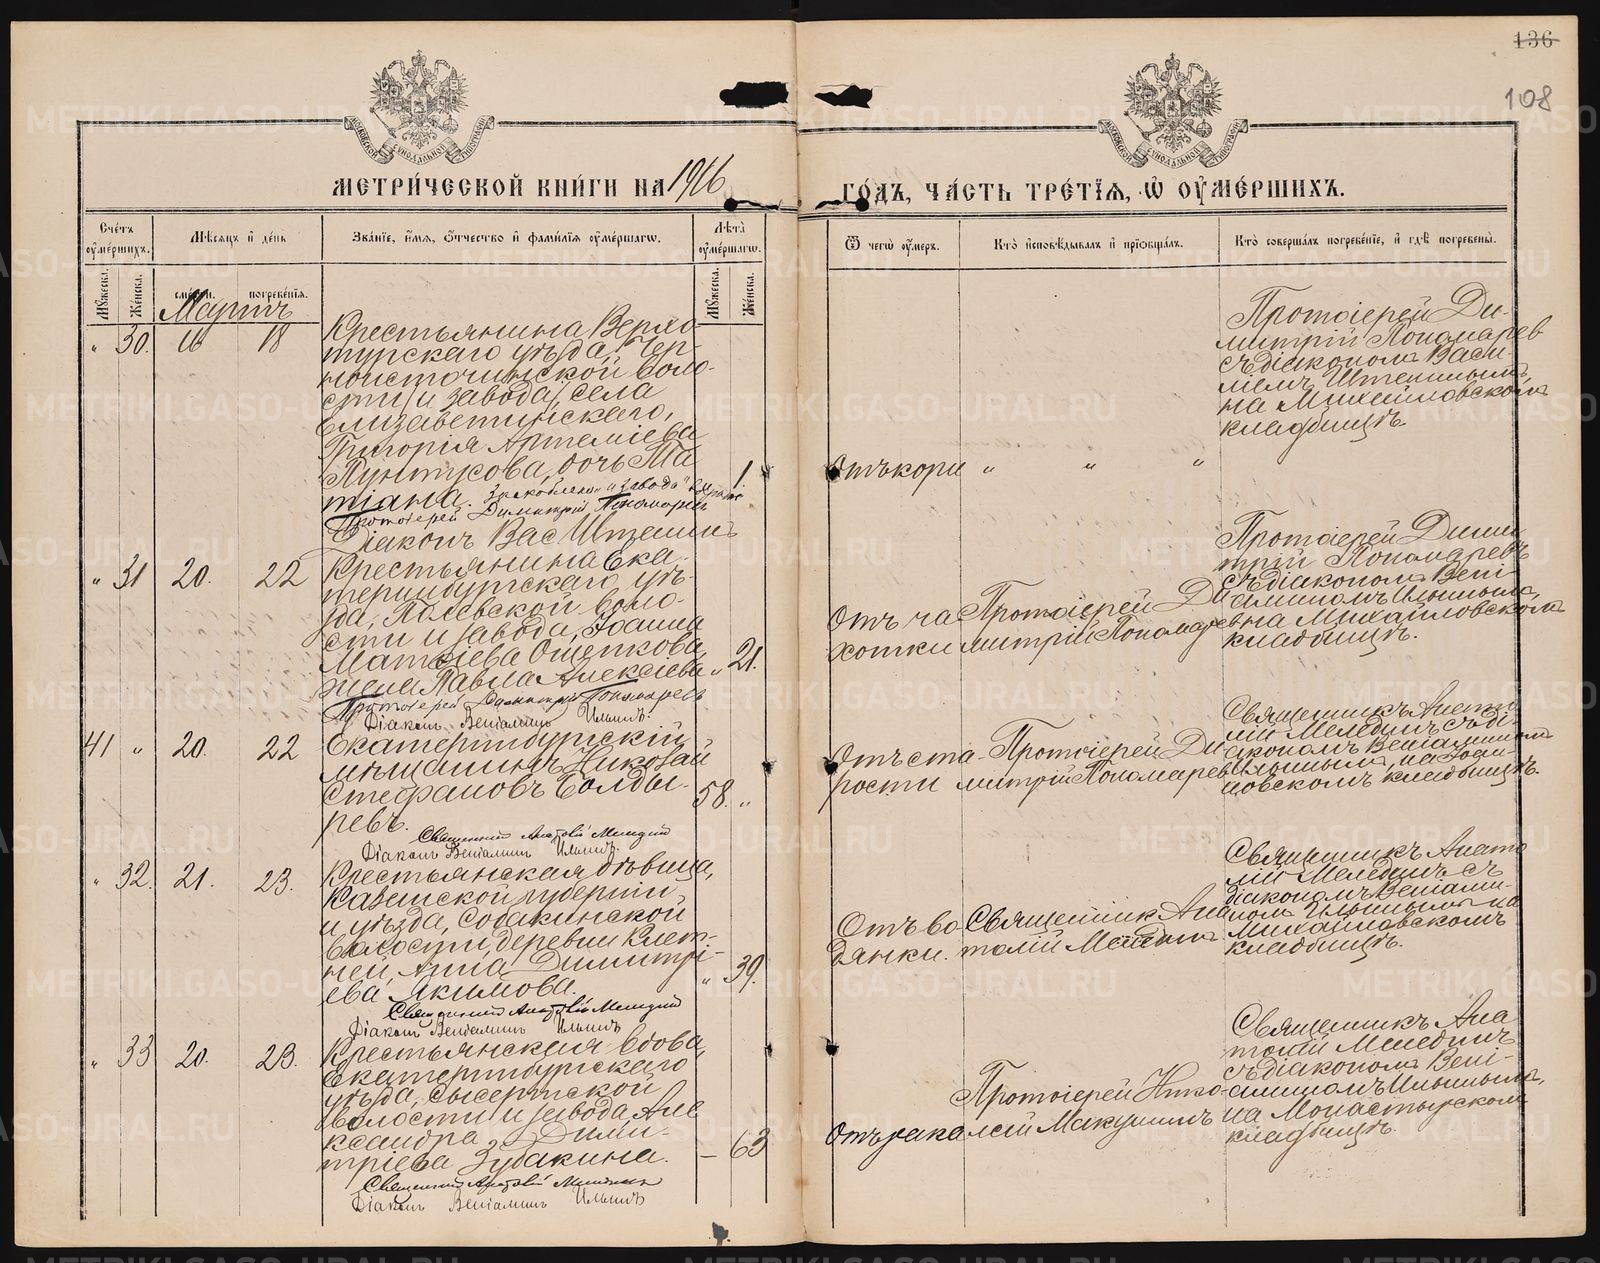 136
108
МОСКОВСКОЙ СѴНОДАЛЬНОЙ ТИПОГРАФІИ
МОСКОВСКОЙ СѴНОДАЛЬНОЙ ТИПОГРАФІИ
МЕТРИ́ЧЕСКОЙ КНИ́ГИ НА 1916
ГО́ДЪ, ЧА́СТЬ ТРЕ́ТЇѦ, Ѡ ОУ҆МЕ́РШИХЪ.
Сче́тъ оу҆ме́ршихъ.
Мѣ́сѧцъ и҆ де́нь
Зва́нїе, и҆́мѧ, ѻ҆́тчество и҆ фамѝлїѧ оу҆ме́ршагѡ.
Лѣ́та оу҆ме́ршагѡ.
Ѿ чегѡ̀ оу҆́меръ.
Кто̀ и҆сповѣ́дывалъ и҆ прїѡбща́лъ.
Кто̀ соверша́лъ погребе́нїе, и҆ гдѣ̀ погребены̀.
Мꙋ́жеска.
Же́нска.
сме́рти.
погребе́нїѧ.
Мꙋ́жеска.
Же́нска.
Мартъ
" 30. 16 18
Крестьянина Верхо-
турскаго уѣзда, Чер-
ноисточинской воло-
сти и завода, села
Елизаветинскаго,
Григорія Артеміева
Пунтусова, дочь Ма
тіана.
Протоіерей Димитрій Пономаревъ
Діаконъ Вас. Штенинъ
1.
Отъ кори " " "
Протоіерей Ди-
митрій Пономарев
съ діакономъ Васи-
ліемъ Штенинымъ,
на Михайловскомъ
кладбищѣ.
" 31 20. 22
Крестьянина Ека-
теринбургскаго уѣз-
да, Полевской воло-
сти и завода, Іоанна
Матѳіева Ощепкова,
жена Павла Алексіева
Протоіерей Димитрій Пономаревъ
Діаконъ Веніаминъ Ильинъ.
" 21.
Отъ ча
хотки
Протоіерей Ди
митрій Пономарев
Протоіерей Дими
трій Пономаревъ
съ діакономъ Вені-
аминомъ Ильинымъ,
на Михайловскомъ
кладбищѣ.
41 " 20. 22
Екатеринбургскій
мѣщанинъ Николай
Стефановъ Болды-
ревъ.
Священникъ Анатолій Меледин
Діаконъ Веніаминъ Ильинъ.
58. "
Отъ ста-
рости
Протоіерей Ди
митрій Пономарев
Священникъ Анато
лій Меледин съ ді-
акономъ Веніаминомъ
Ильинымъ, на Іоан-
новскомъ кладбищѣ.
" 32. 21. 23.
Крестьянская дѣвица,
Казанской губерніи
и уѣзда, Собакинской
волости, деревни Клет-
ней, Анна Димитрі-
ева Якимова.
Священникъ Анатолій Меледин
Діаконъ Веніаминъ Ильинъ
" 39.
Отъ во
дянки.
Священник Ана
толій Меледин
Священникъ Анато
лій Меледин съ
діакономъ Веніами-
номъ Ильинымъ на
Михайловскомъ
кладбищѣ.
" 33 20. 23.
Крестьянская вдова,
Екатеринбургскаго
уѣзда, Сысертской
волости и завода Але
ксандра Дими-
тріева Зубакина.
Священникъ Анатолій Меледин
Діаконъ Веніаминъ Ильинъ
— 63
Отъ рака
Протоіерей Нико-
лай Макушинъ
Священникъ Ана
толій Меледин
съ діакономъ Вені-
аминомъ Ильинымъ,
на Монастырском
кладбищѣ.
METRIKI.GASO-URAL.RU